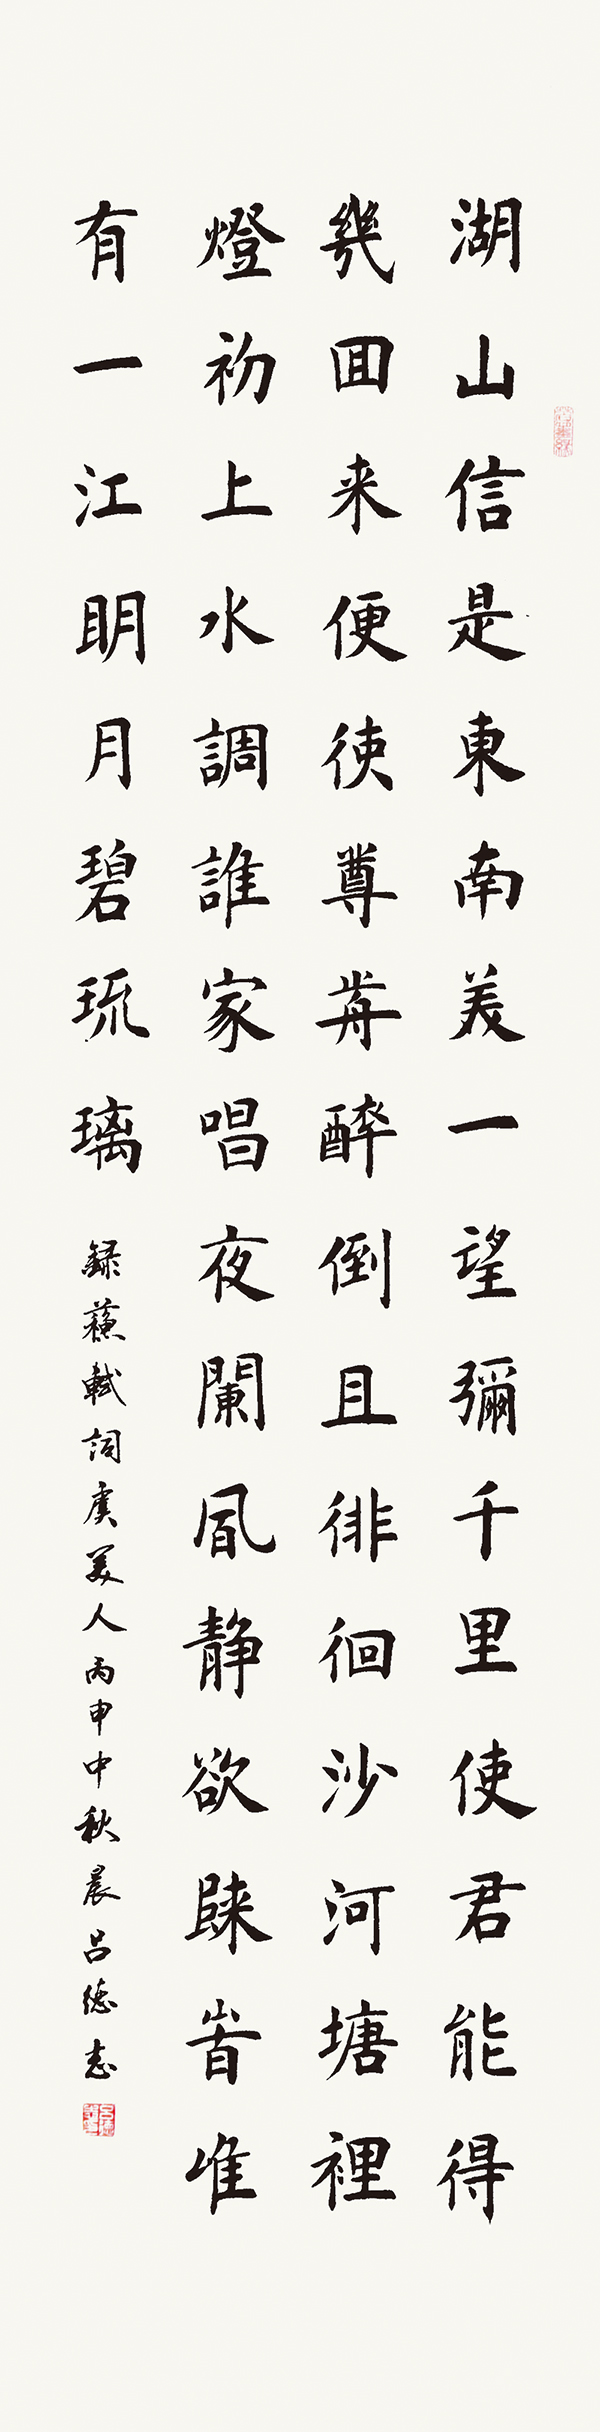 湖山信是東南美一望彌千里使君能得
幾回来便使尊前醉倒且徘徊沙河塘裡
燈初上水調誰家唱夜闌風靜欲歸時唯
有一江明月碧琉璃
録蘇軾詞虞美人丙申中秋晨吕德志